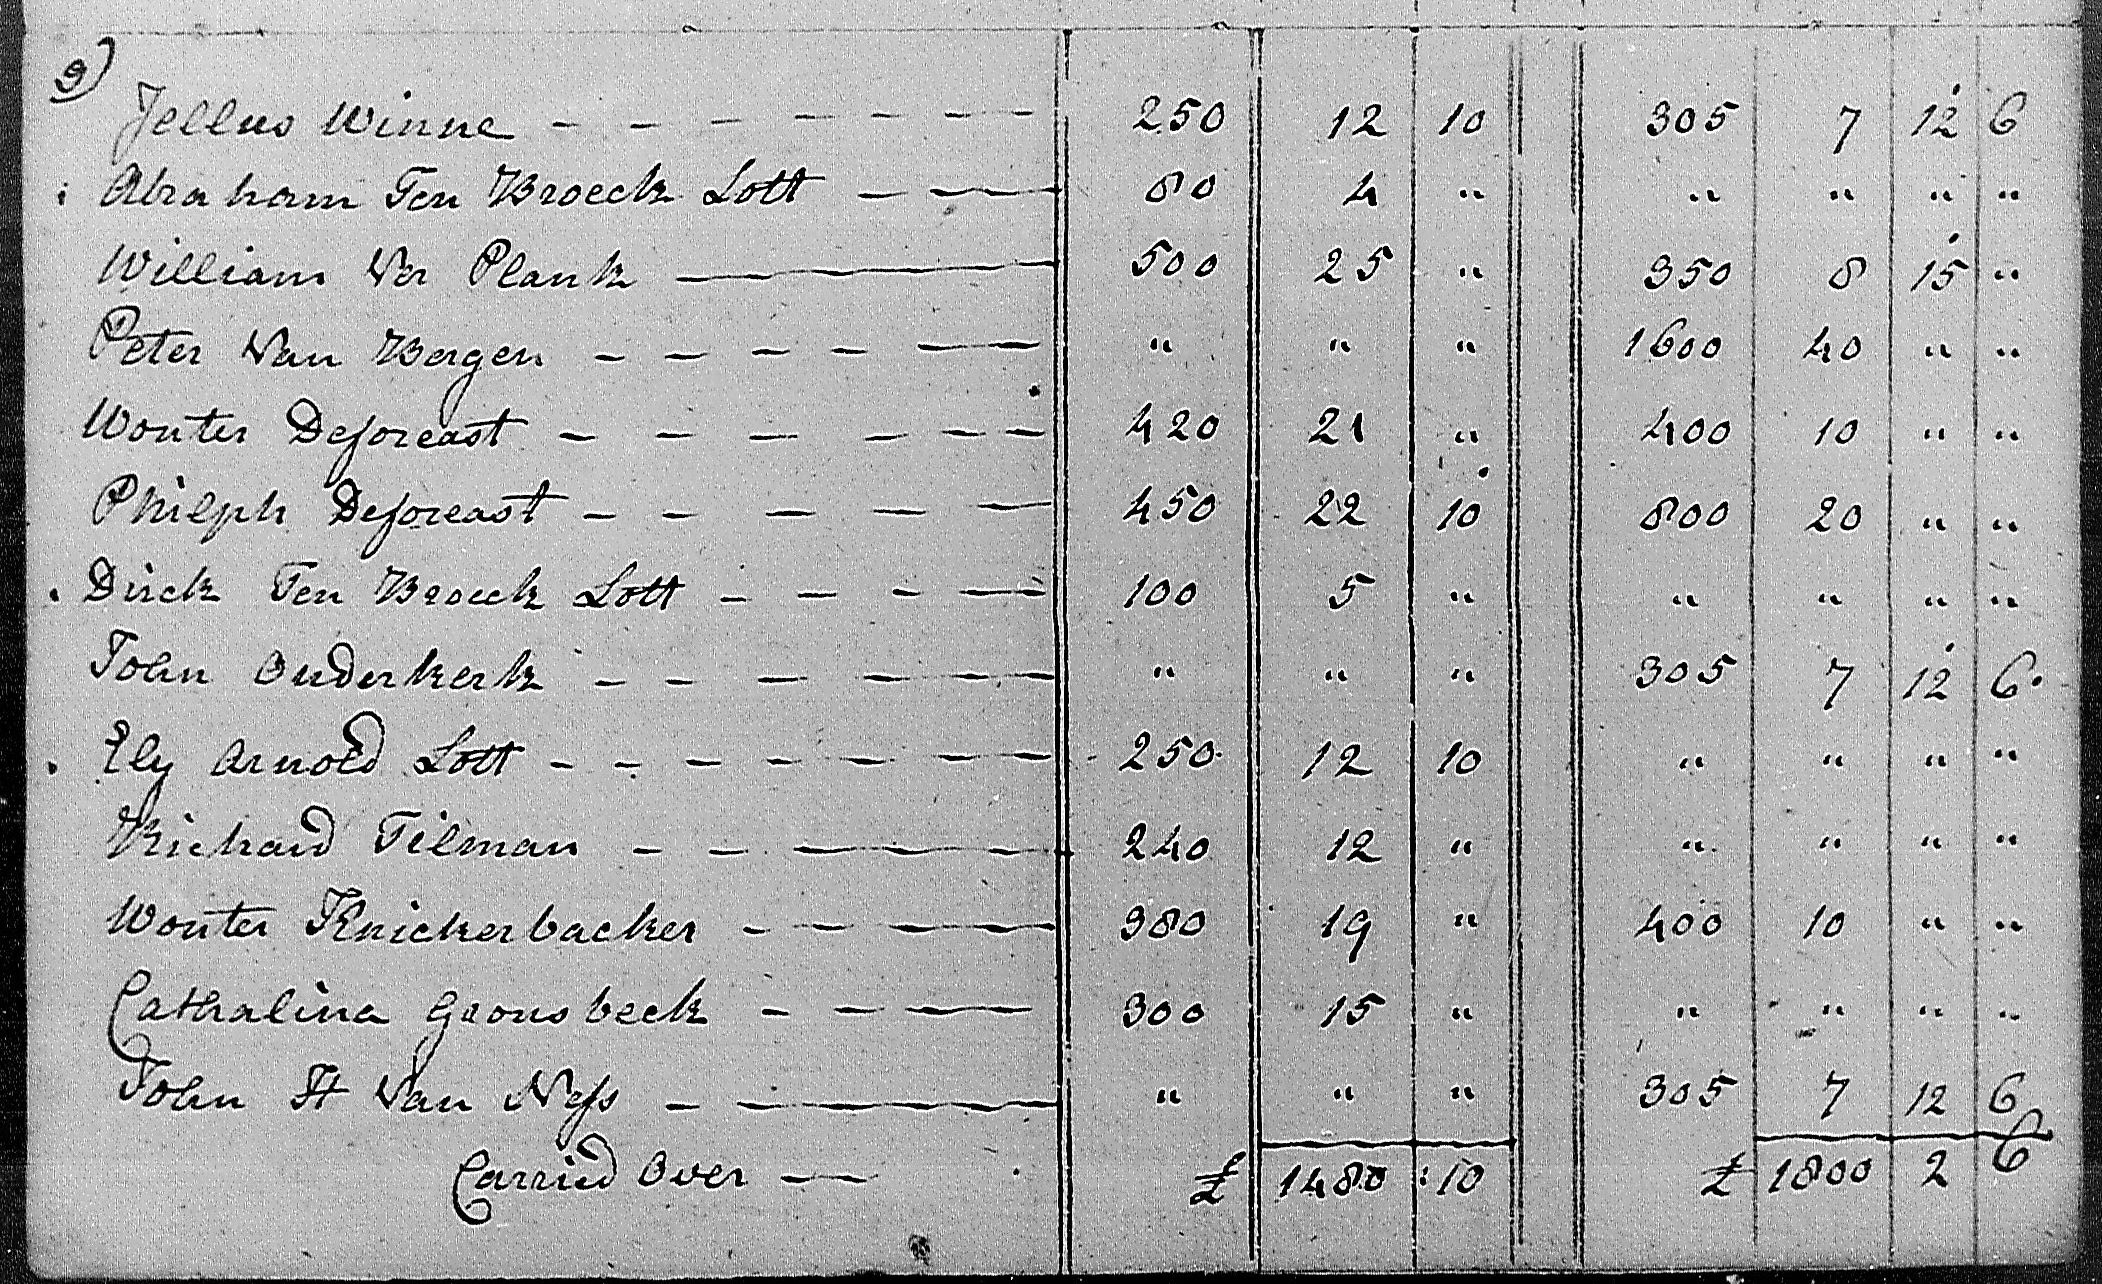 9)
Jellus Winne - - - - - - - 250 12 10 305 7 12 6
Abraham Ten Broeck Lott - - - 80 4 " " " " "
William Ver Plank - 500 25 " 350 8 15 "
Peter Van Bergen - - - - - - " " " 1600 40 " "
Wouter Deforeast - - - - - - 420 21 " 400 10 " "
Phileph Deforeast - - - - - 450 22 10 800 20 " "
Dirck Ten Broeck Lott - - - - - 100 5 " " " " "
John Ouderkerk - - - - - " " " 305 7 12 6
Ely Arnold Lott - - - - - - - 250 12 10 " " " "
Richard Tilman - - - - - 240 12 " " " " "
Wouter Knickerbacker - - - - 380 19 " 400 10 " "
Cathalina Gronsbeck - - - - 300 15 " " " " "
John H Van Ness - - " " " 305 7 12 6
Carried Over - - £ 1480 : 10 £ 1800 2 6